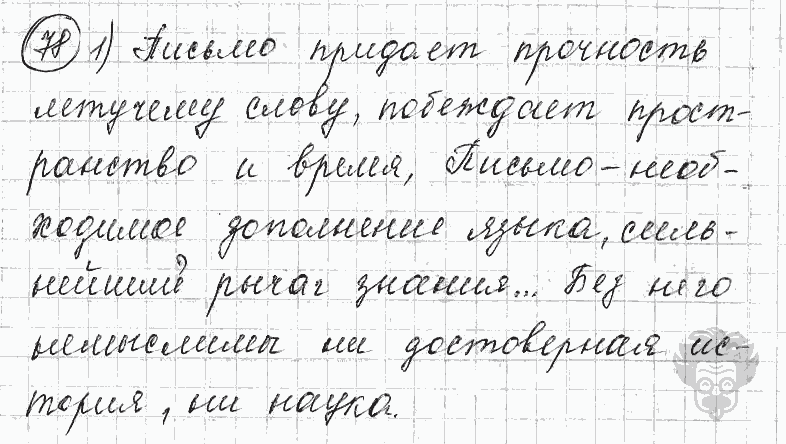 78 1) Письмо придает прочность
летучему слову, побеждает прост-
ранство и время, Письмо - необ-
ходимое дополнение языка, силь-
нейший рычаг знания... Без него
немыслимы ни достоверная ис-
тория, ни наука.